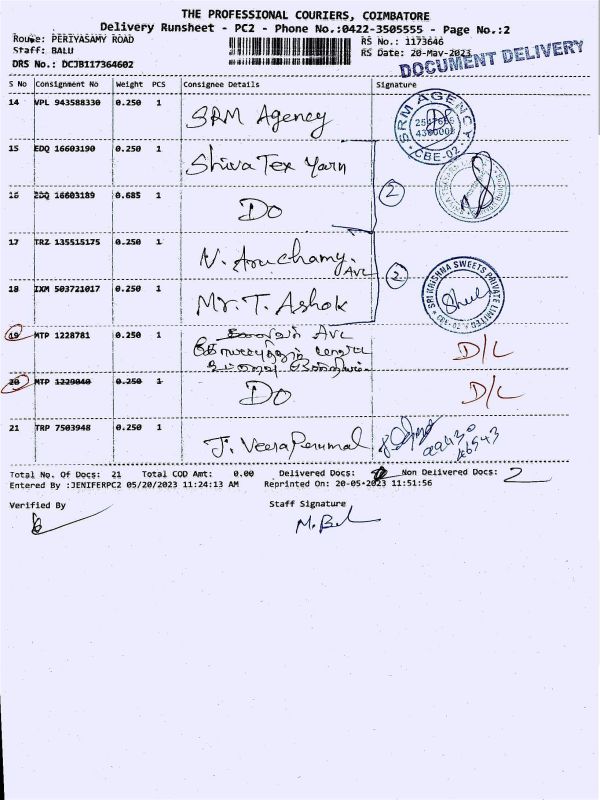 THE PROFESSIONAL COURIERS, COIMBATORE
Delivery Runsheet - PC2 - Phone No.:0422-3505555 - Page No.:2
Route: PERIYASAMY ROAD
RS No.: 1173646
Staff: BALU
RS Date: 20-May-2023
DRS No.: DCJB117364602
DOCUMENT DELIVERY
S No Consignment No Weight PCS Consignee Details Signature
14 VPL 943588330 0.250 1 SRM Agency
SRM AGENCY
CBE-02
15 EDQ 16603190 0.250 1 Shiva Tex Yarn
16 EDQ 16603189 0.685 1 Do
2
17 TRZ 135515175 0.250 1 N. Aruchamy. Avl
2
SRI KRISHNA SWEETS PRIVATE LIMITED
18 IXM 503721017 0.250 1 Mr. T. Ashok
19 MTP 1228781 0.250 1 Avl
D/L
20 MTP 1229040 0.250 1 Do D/L
21 TRP 7503948 0.250 1 J. VeeraPerumal
Total No. Of Docs: 21 Total COD Amt: 0.00 Delivered Docs: Non Delivered Docs: 2
Entered By :JENIFERPC2 05/20/2023 11:24:13 AM Reprinted On: 20-05-2023 11:51:56
Verified By Staff Signature